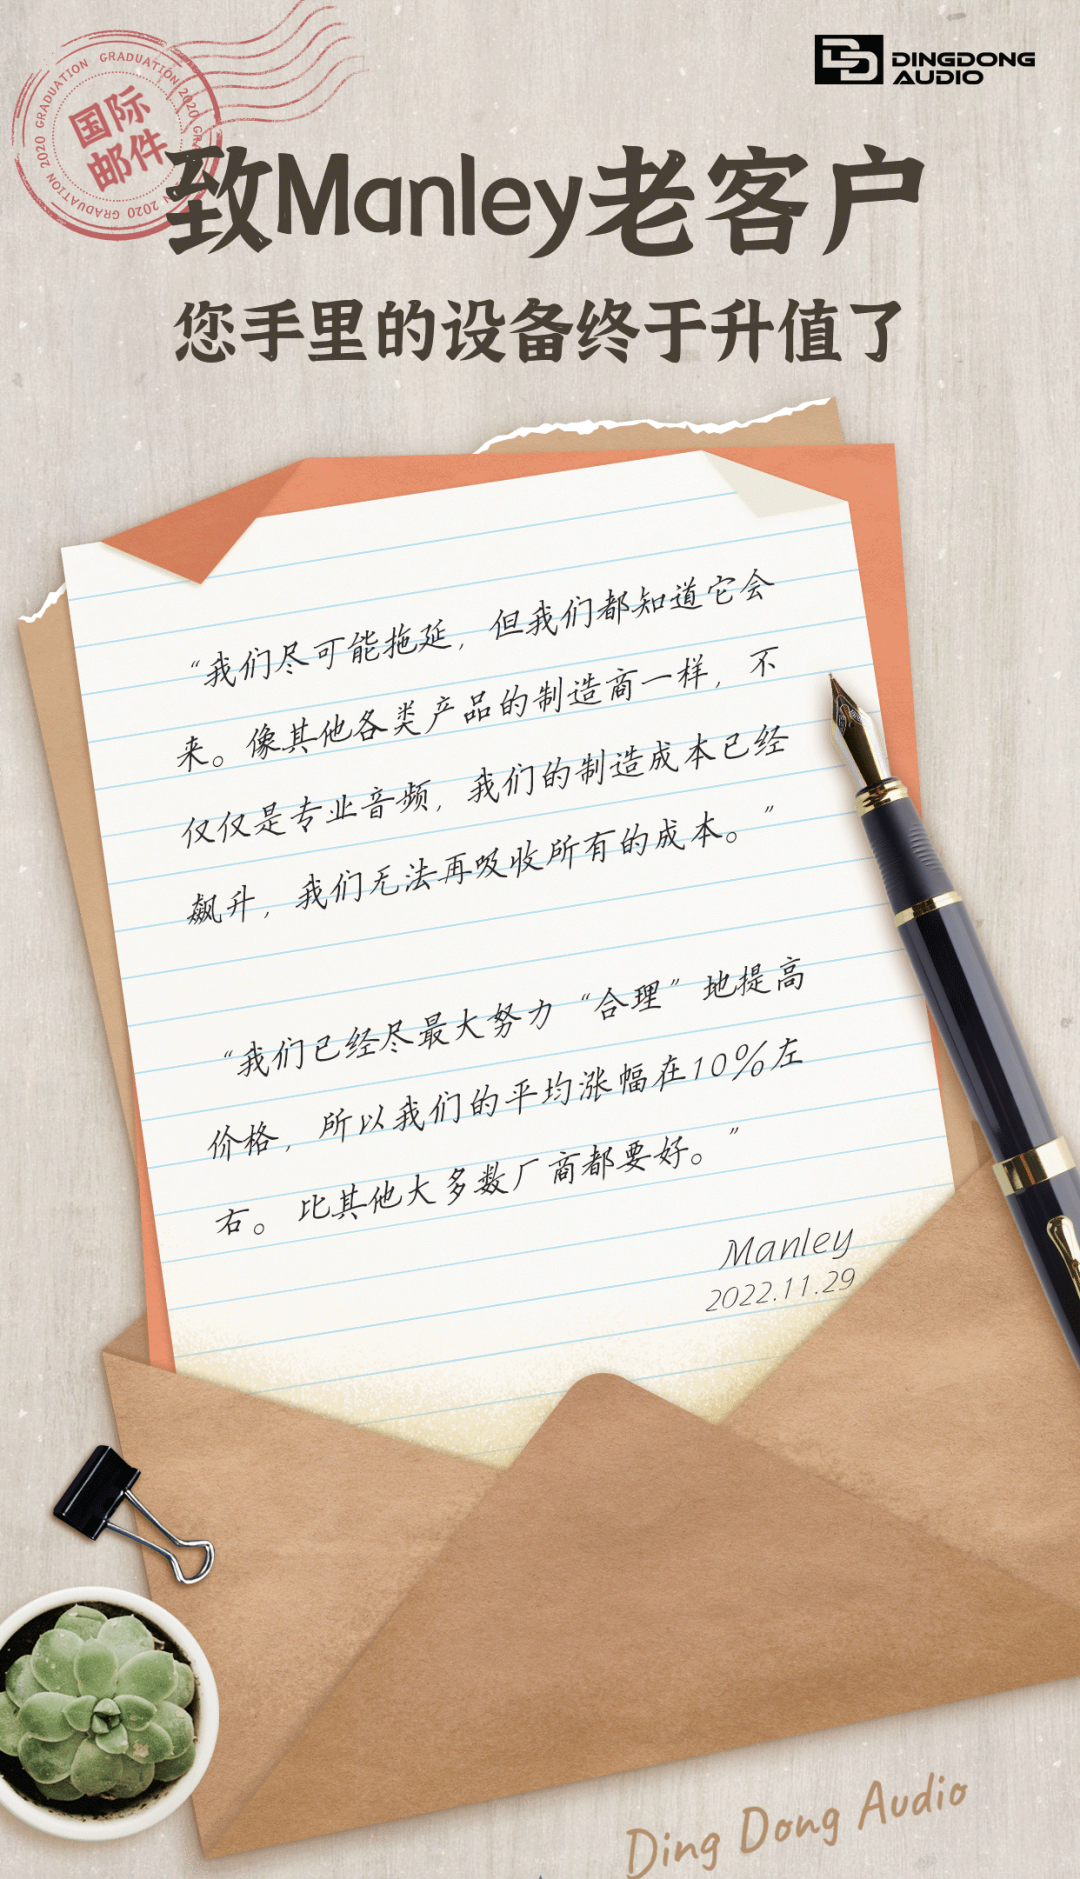 DINGDONG
AUDIO
GRADUATION GRADUATION 2020 GRADUATION 2020 GRADUATION 2020
国际
邮件
致Manley老客户
您手里的设备终于升值了
“我们尽可能拖延，但我们都知道它会
来。像其他各类产品的制造商一样，不
仅仅是专业音频，我们的制造成本已经
飙升，我们无法再吸收所有的成本。”
“我们已经尽最大努力“合理”地提高
价格，所以我们的平均涨幅在10%左
右。比其他大多数厂商都要好。”
Manley
2022.11.29
Ding Dong Audio